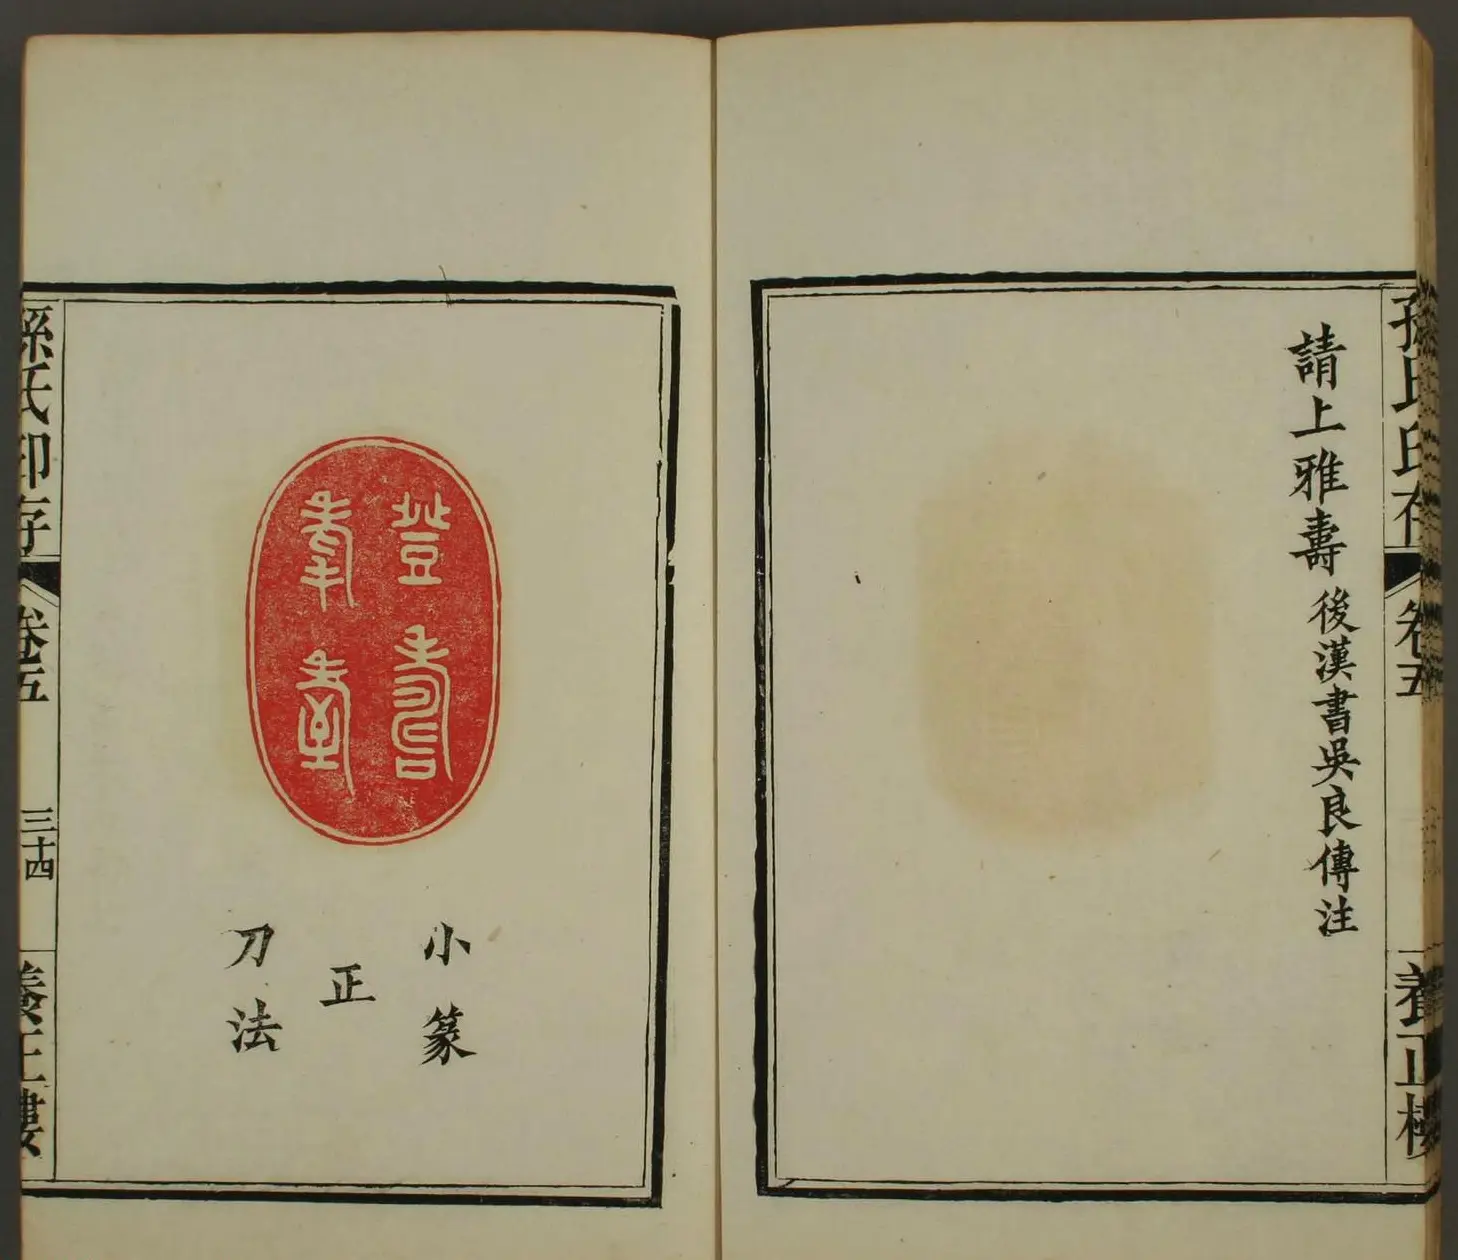 孫氏印存 卷五 養正樓
請上雅壽 後漢書吳良傳注
登壽
耄耋
小篆
正
刀法
孫氏印存 卷五 三十四 養正樓